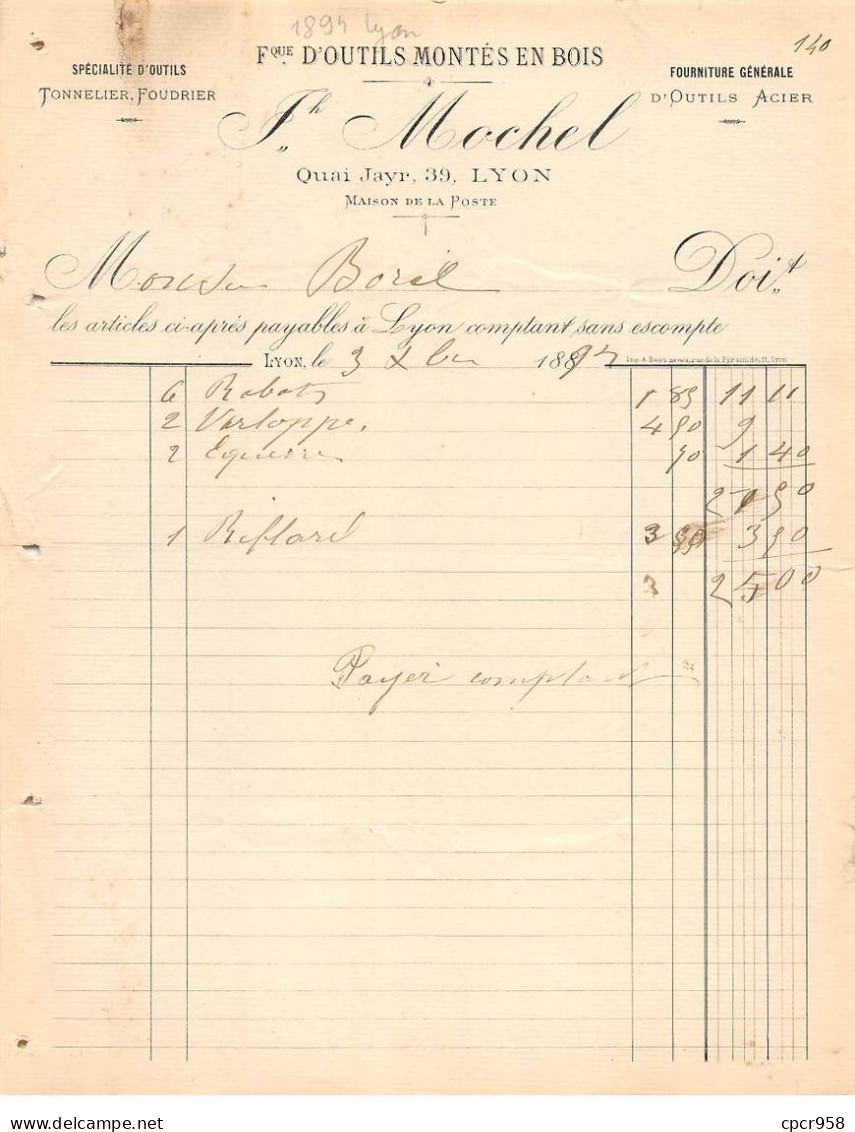 1894 Lyon
140
Fque D'OUTILS MONTÉS EN BOIS
SPÉCIALITÉ D'OUTILS
TONNELIER, FOUDRIER
FOURNITURE GÉNÉRALE
D'OUTILS ACIER
Jh Mochel
Quai Jayr, 39, LYON
MAISON DE LA POSTE
Monsieur Borel Doit
les articles ci-après payables à Lyon comptant, sans escompte
LYON, le 3 Xbre 1894
6 Rabots 1 85 11 11
2 Varloppe. 4 50 9
2 Equerre 70 1 40
21 50
1 Riflard 3 50 3 50
3 25 00
Payer comptant
cpcr958